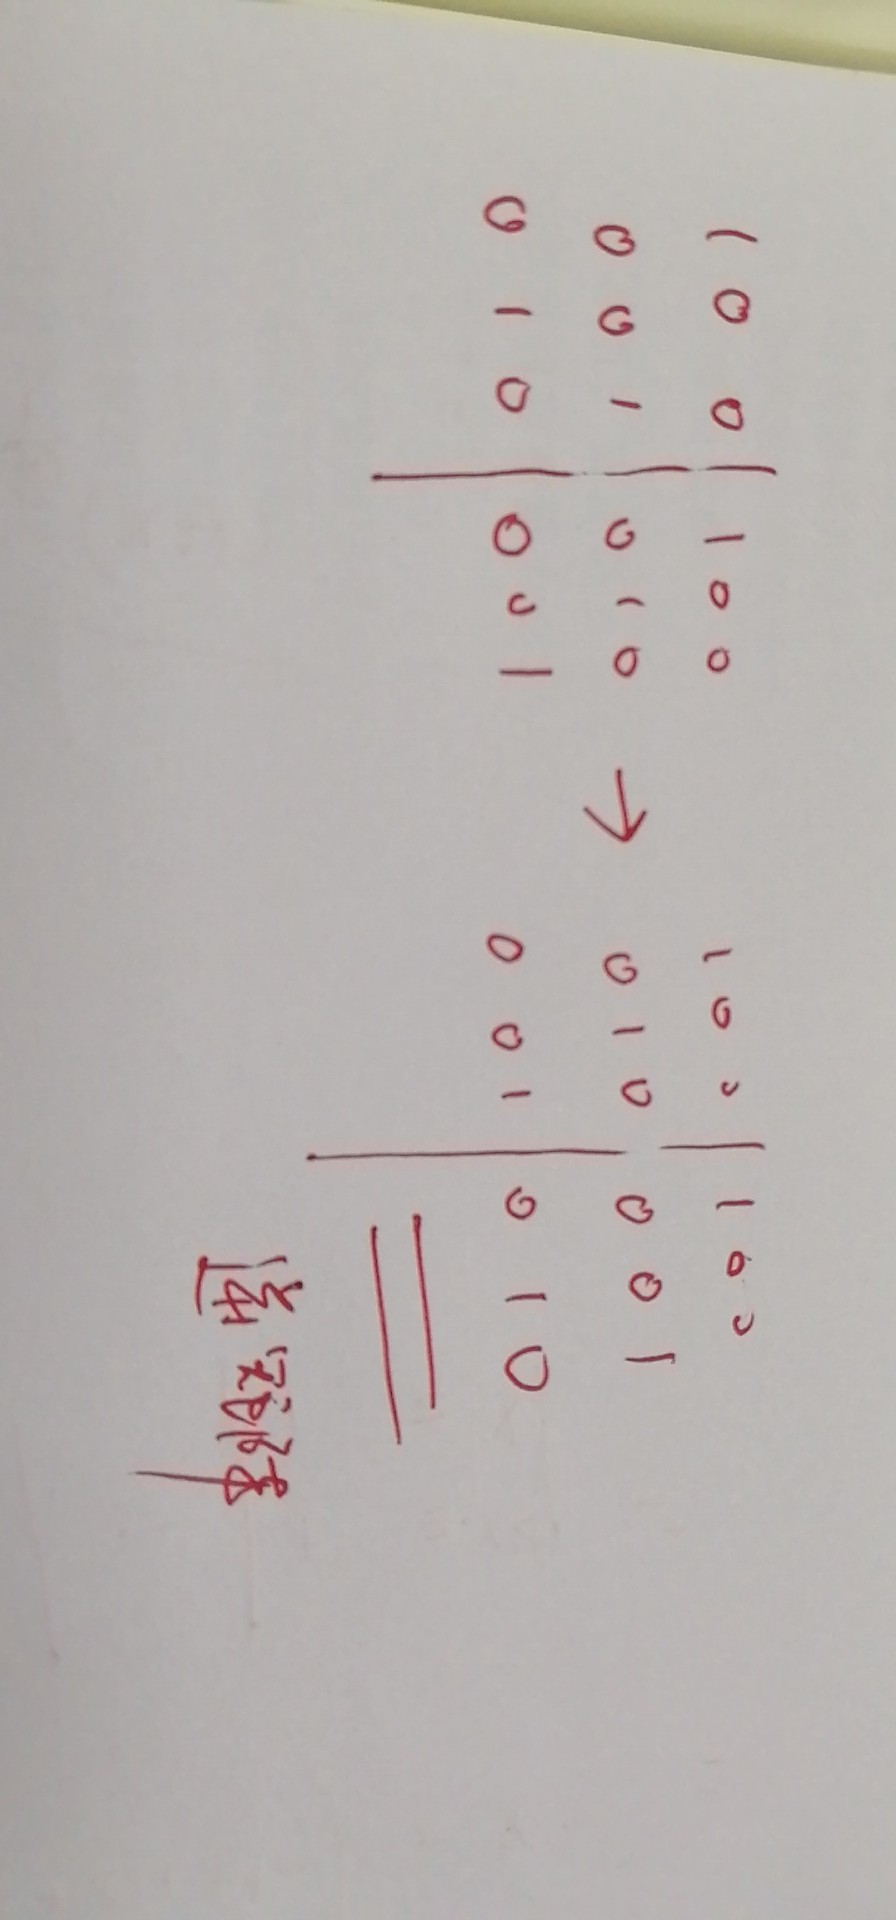 1 0 0 | 1 0 0 1 0 0 | 1 0 0
0 0 1 | 0 1 0 → 0 1 0 | 0 0 1
0 1 0 | 0 0 1 0 0 1 | 0 1 0